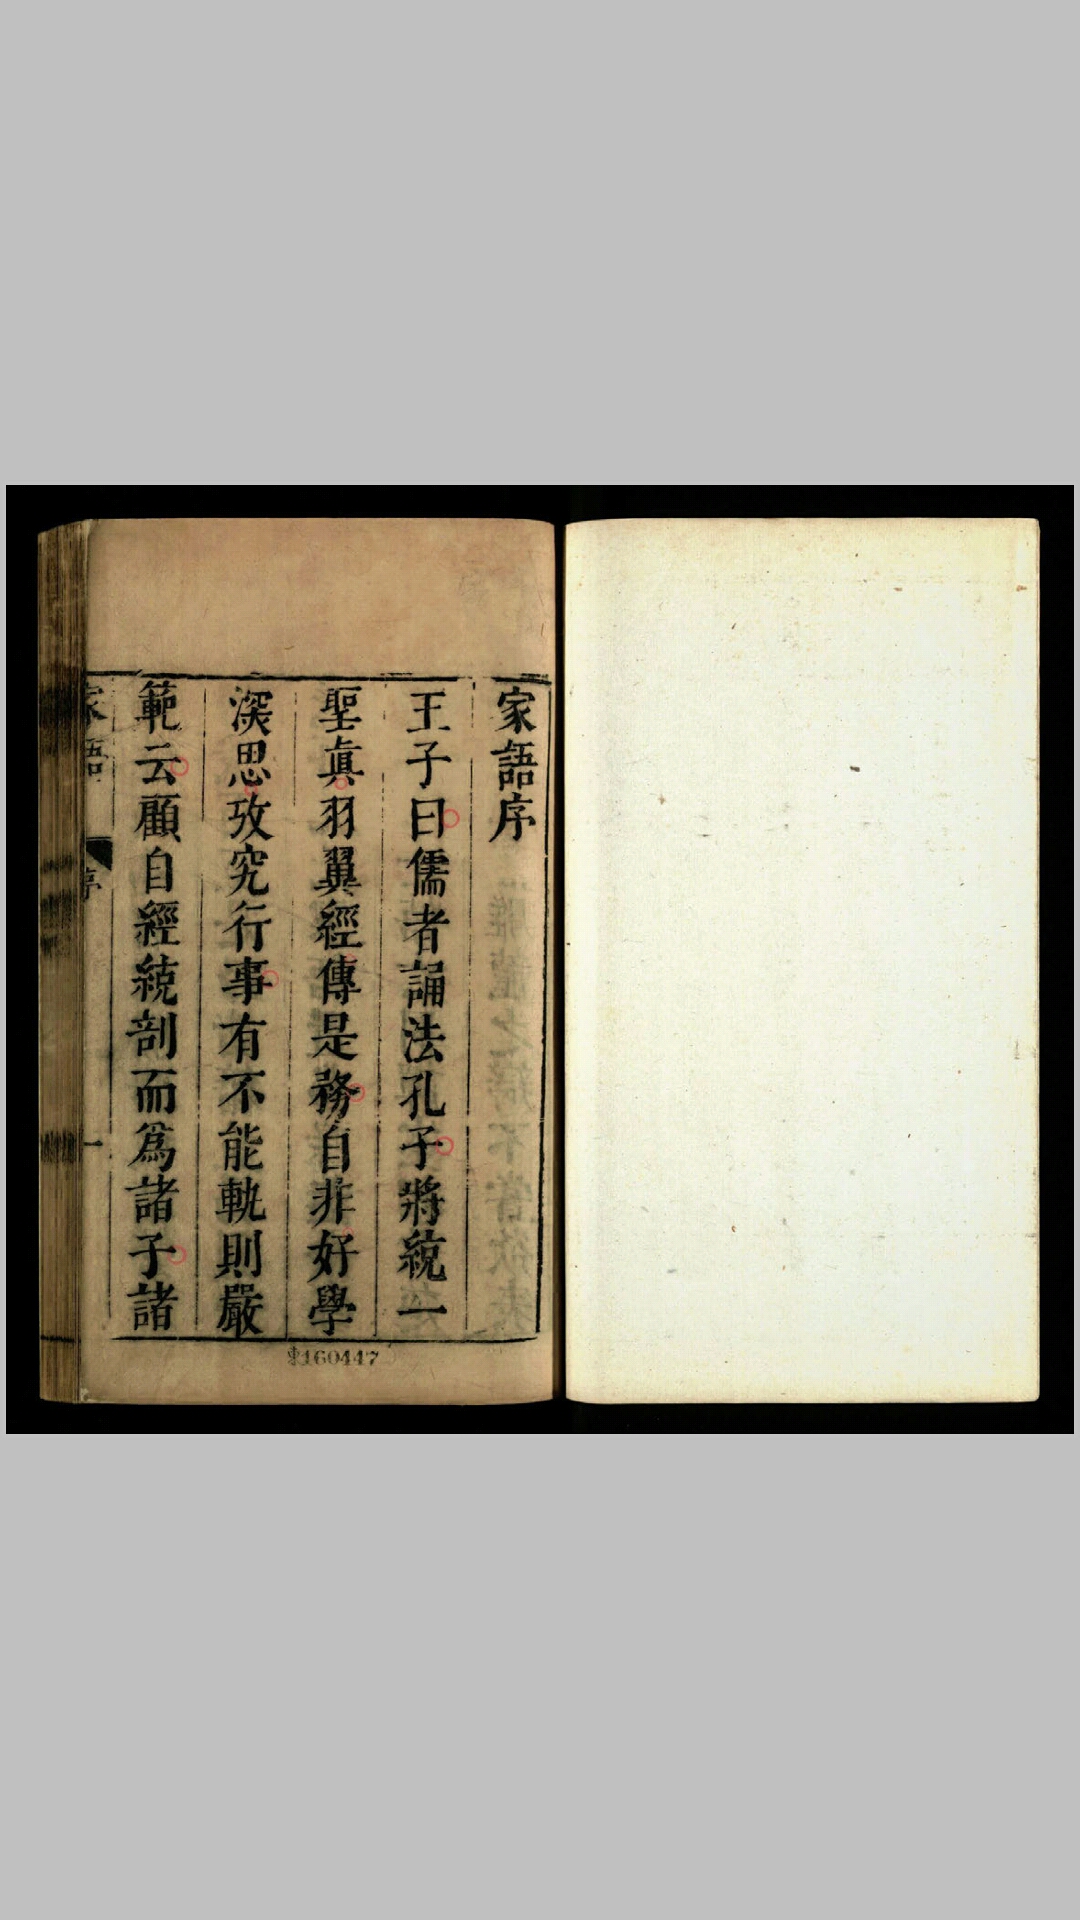 家語序
王子曰儒者誦法孔子將統一
聖眞羽翼經傳是務自非好學
深思攷究行事有不能軌則嚴
範云顧自經統剖而爲諸子諸
家語 序 一
東160447